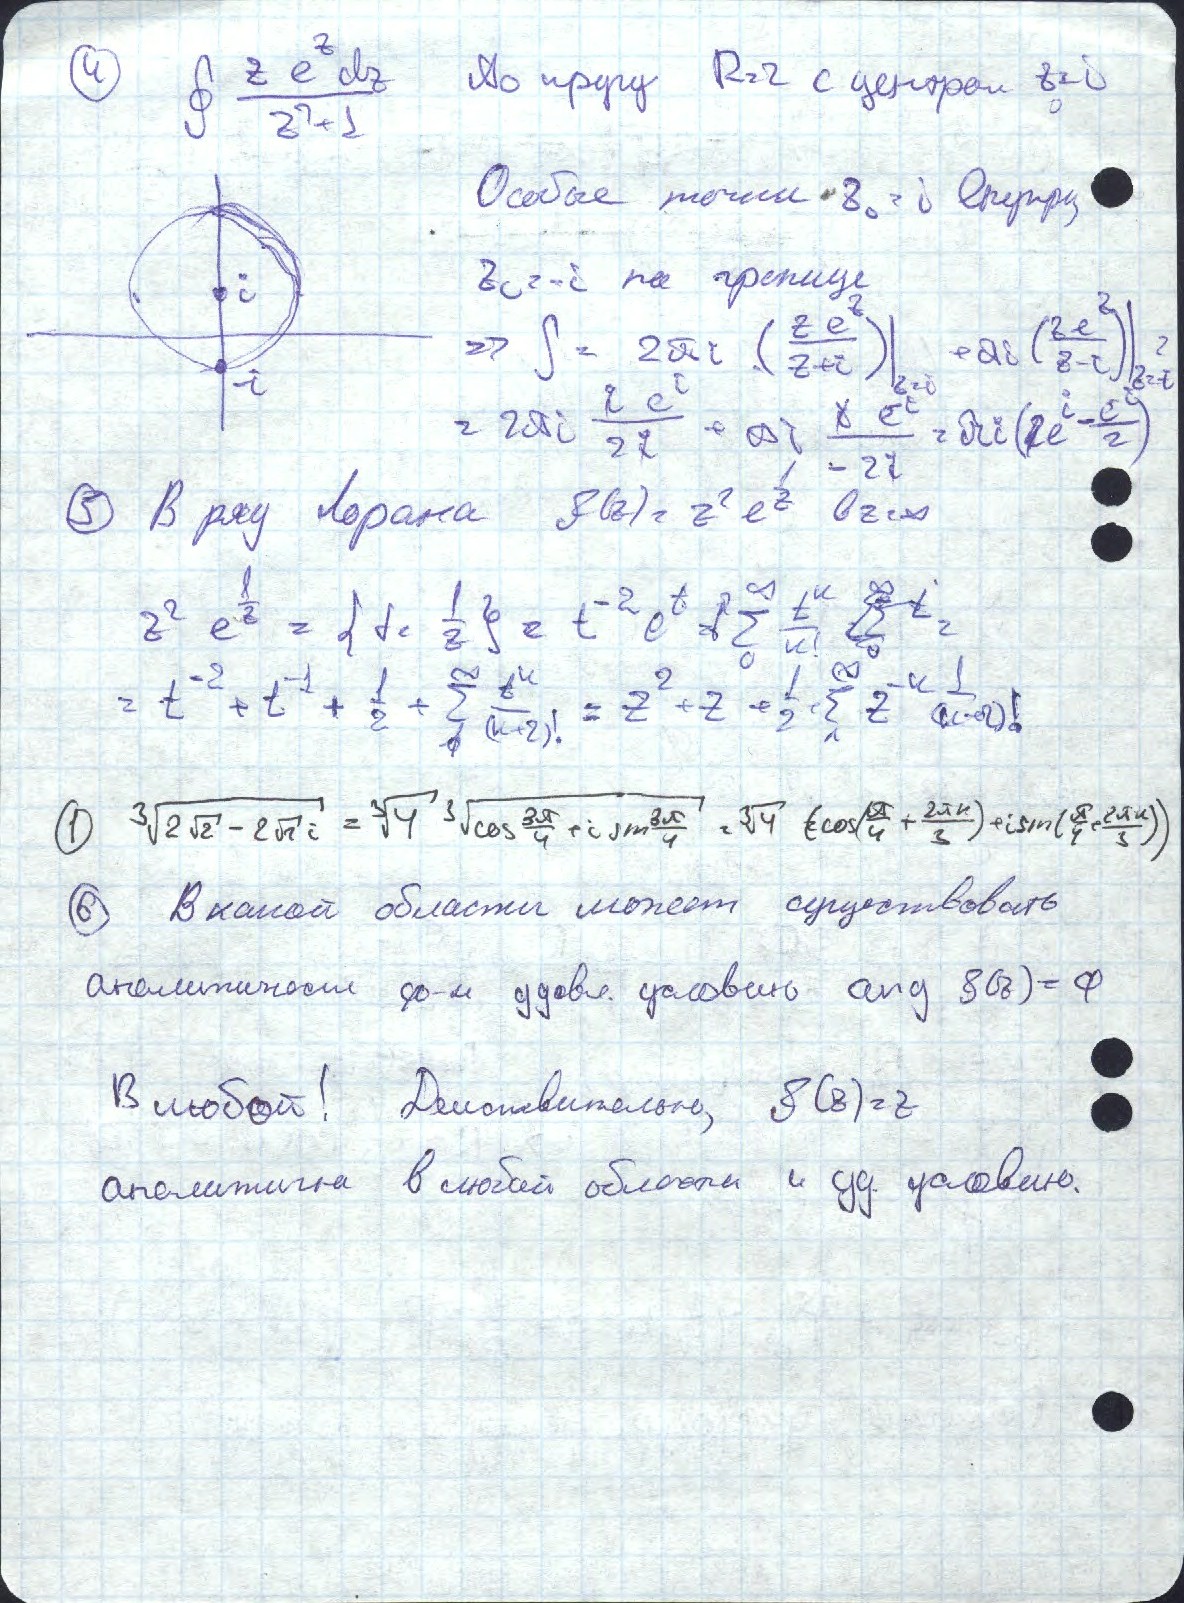 ④ ∮ z e^z dz / (z²+1) По кругу R=2 с центром z₀=i
Особые точки z₀=i внутри
i
z₀=-i на границе
-i
=> ∫ = 2πi (z e^z / (z+i))|z=i + πi (z e^z / (z-i))|z=-i
= 2πi (i e^i / 2i) + πi
⑤ В ряд Лорана f(z)= z² e^(1/z) в z=∞
z² e^(1/z) = { t = 1/z } = t^-2 e^t = ∑₀^∞ t^k/k! =
= t^-2 + t^-1 + 1/2 + ∑₁^∞ t^k/(k+2)! = z² + z + 1/2 + ∑₁^∞ z^-k 1/(k+2)!
① ³√(2√2 - 2√2 i) = ³√4 ³√(cos 3π/4 + i sin 3π/4) = ³√4 (cos(π/4 + 2πk/3) + i sin(π/4 + 2πk/3))
⑥ В какой области может существовать
аналитическая ф-я удовл. условию arg f(z) = φ
В любой! Действительно, f(z)=z
аналитична в любой области и уд. условию.